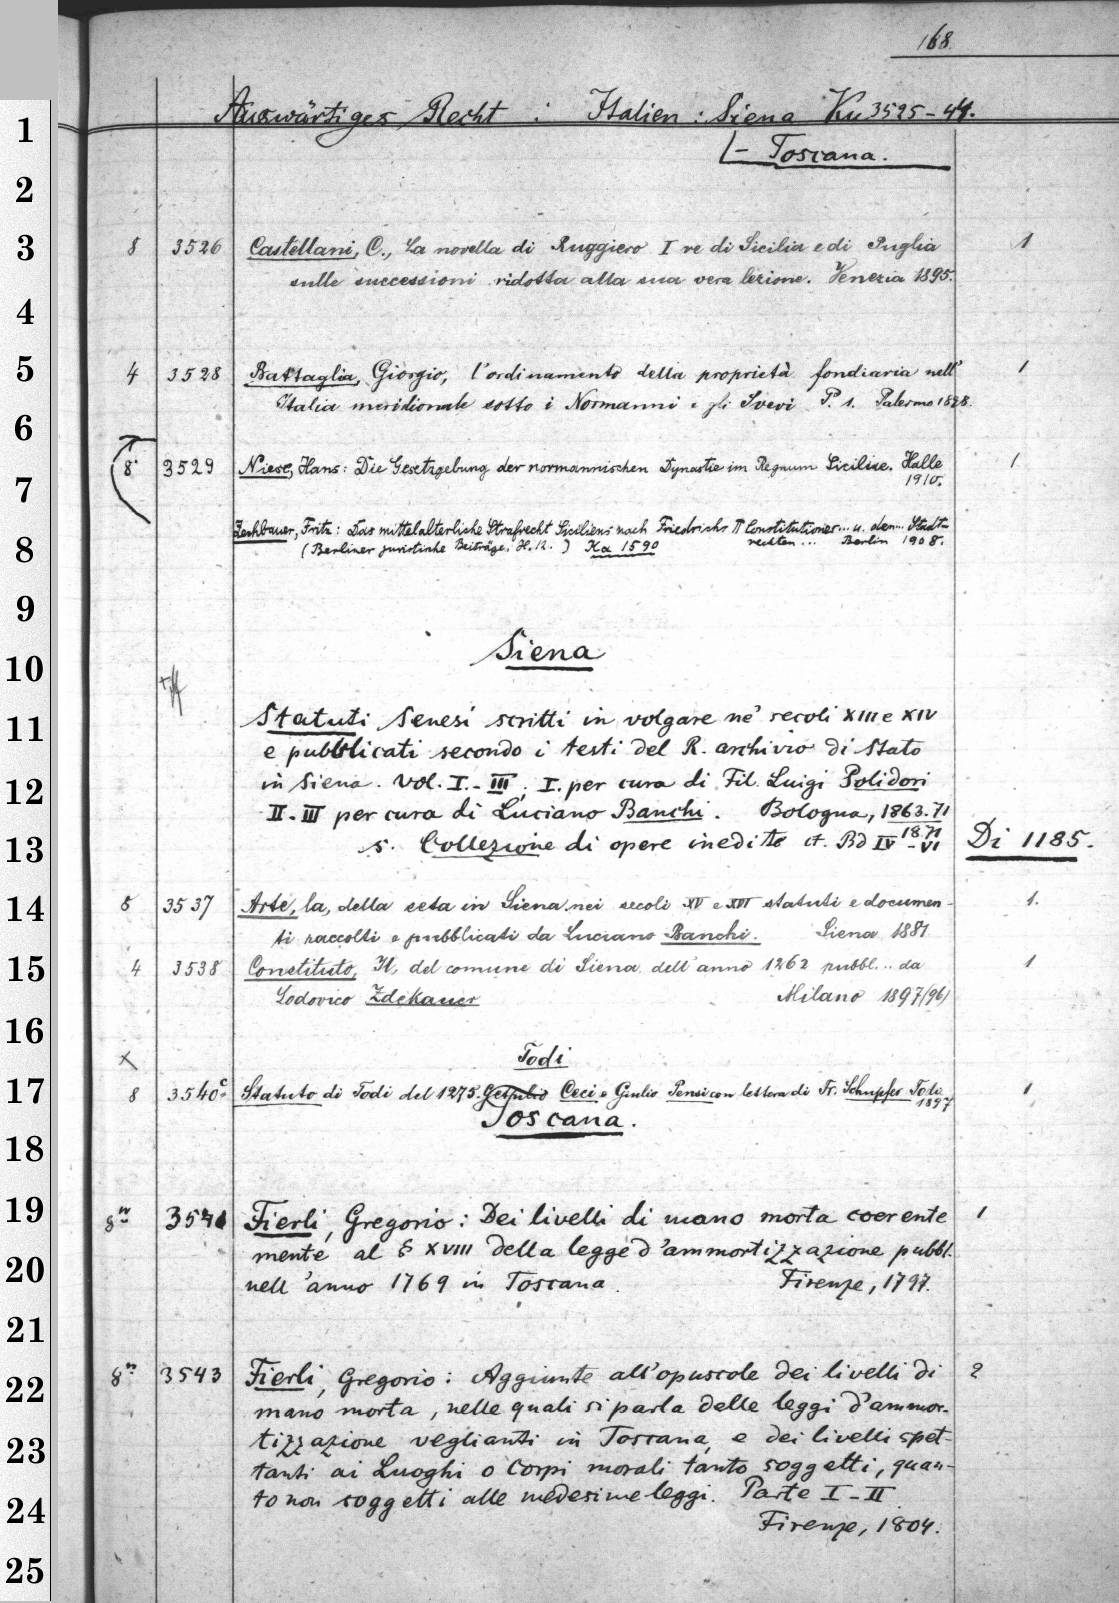 168.
Auswärtiges Recht : Italien : Siena Ku 3525-44.
- Toscana.
8 3526 Castellani, C., La novella di Ruggiero I re di Sicilia e di Puglia 1
sulle successioni ridotta alla sua vera lezione. Venezia 1895.
4 3528 Battaglia, Giorgio, l'ordinamento della proprietà fondiaria nell' 1
Italia meridionale sotto i Normanni e gli Svevi P. 1. Palermo
8 3529 Niese, Hans: Die Gesetzgebung der normannischen Dynastie im Regnum Siciliae. Halle 1
1910.
Zechbauer, Fritz: Das mittelalterliche Strafrecht Siciliens nach Friedrichs II Constitutiones... u. den... Stadt-
(Berliner juristische Beiträge, H. 12. ) Ka 1590 rechten ... Berlin 1908.
Siena
Statuti Senesi scritti in volgare ne' secoli XIII e XIV
e pubblicati secondo i testi del R. archivio di Stato
in Siena. Vol. I.-III; I. per cura di Fil. Luigi Polidori
II-III per cura di Luciano Banchi. Bologna, 1863.71
1871
s. Collezione di opere inedite ct. Bd IV-VI Di 1185.
8 3537 Arte, la, della seta in Siena nei secoli XV e XVI statuti e documen- 1.
ti raccolti e pubblicati da Luciano Banchi. Siena 1881
4 3538 Constituto, Il, del comune di Siena dell' anno 1262 pubbl... da 1
Lodovico Zdekauer Milano 1897(96)
Todi
8 3540c Statuto di Todi del 1275. Getulio Ceci e Giulio Pensi con lettera di Fr. Schupfer Todi 1
1897
Toscana.
8n 3541 Fierli, Gregorio: Dei livelli di mano morta coerente 1
mente al § XVIII della legge d'ammortizzazione pubbl.
nell'anno 1769 in Toscana. Firenze, 1797.
8n 3543 Fierli, Gregorio: Aggiunte all'opuscole dei livelli di 2
mano morta, nelle quali si parla delle leggi d'ammor-
tizzazione veglianti in Toscana, e dei livelli spet-
tanti ai Luoghi o Corpi morali tanto soggetti, quan-
to non soggetti alle medesime leggi. Parte I-II
Firenze, 1804.
1
2
3
4
5
6
7
8
9
10
11
12
13
14
15
16
17
18
19
20
21
22
23
24
25